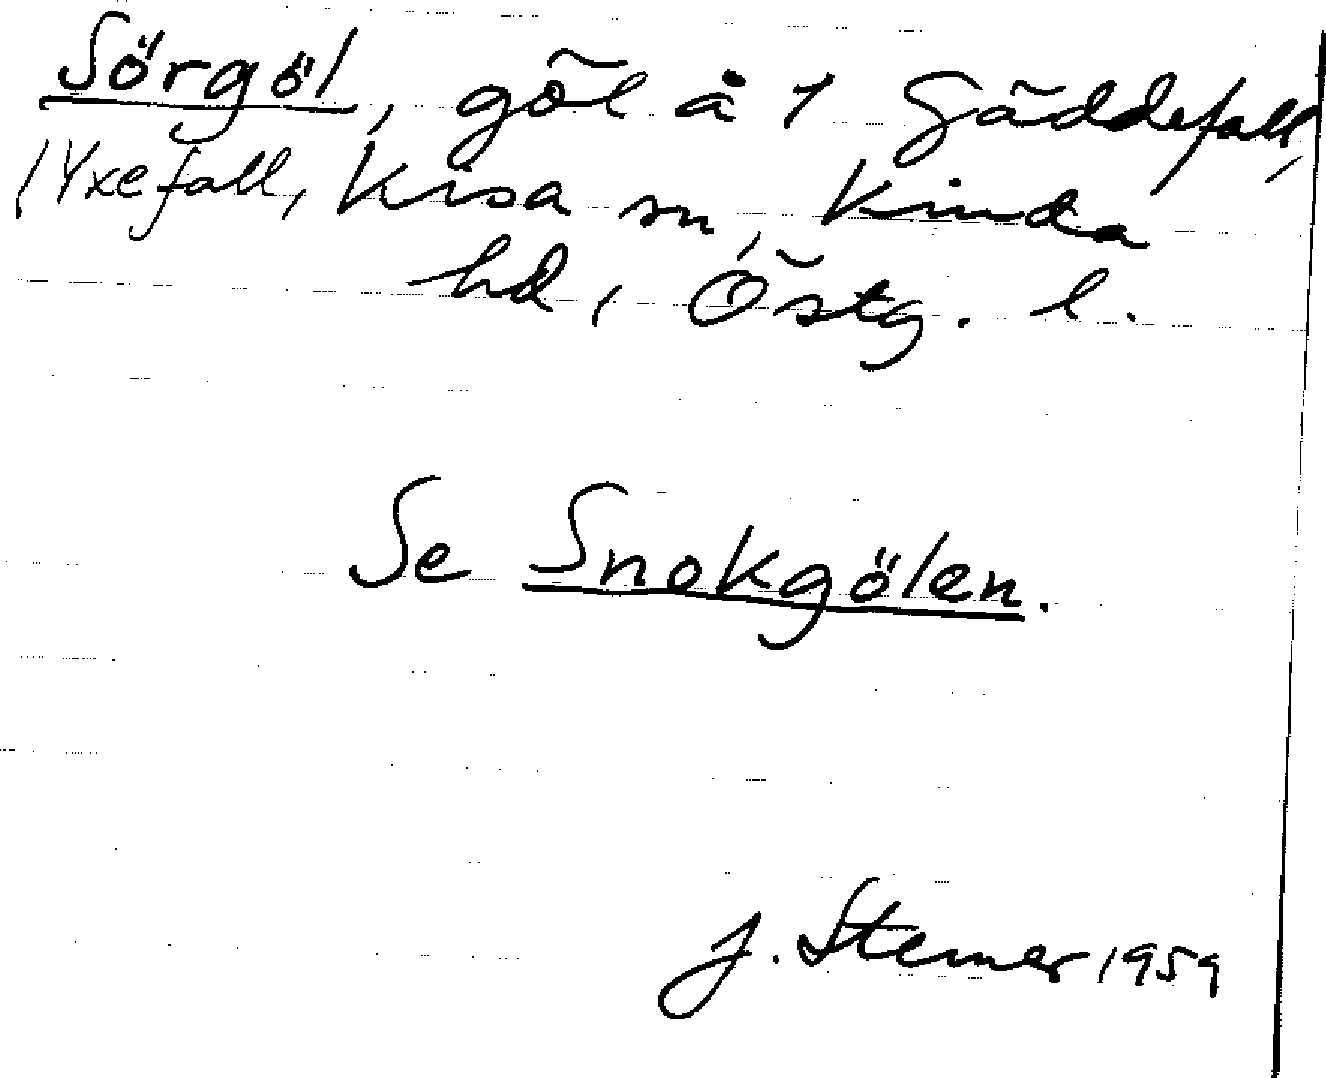 Sörgöl, göl å 1 Gäddefall,
1 Yxefall, Kisa sn, Kinda
hd, Östg. l.
Se Snokgölen.
J. Sterner 1959